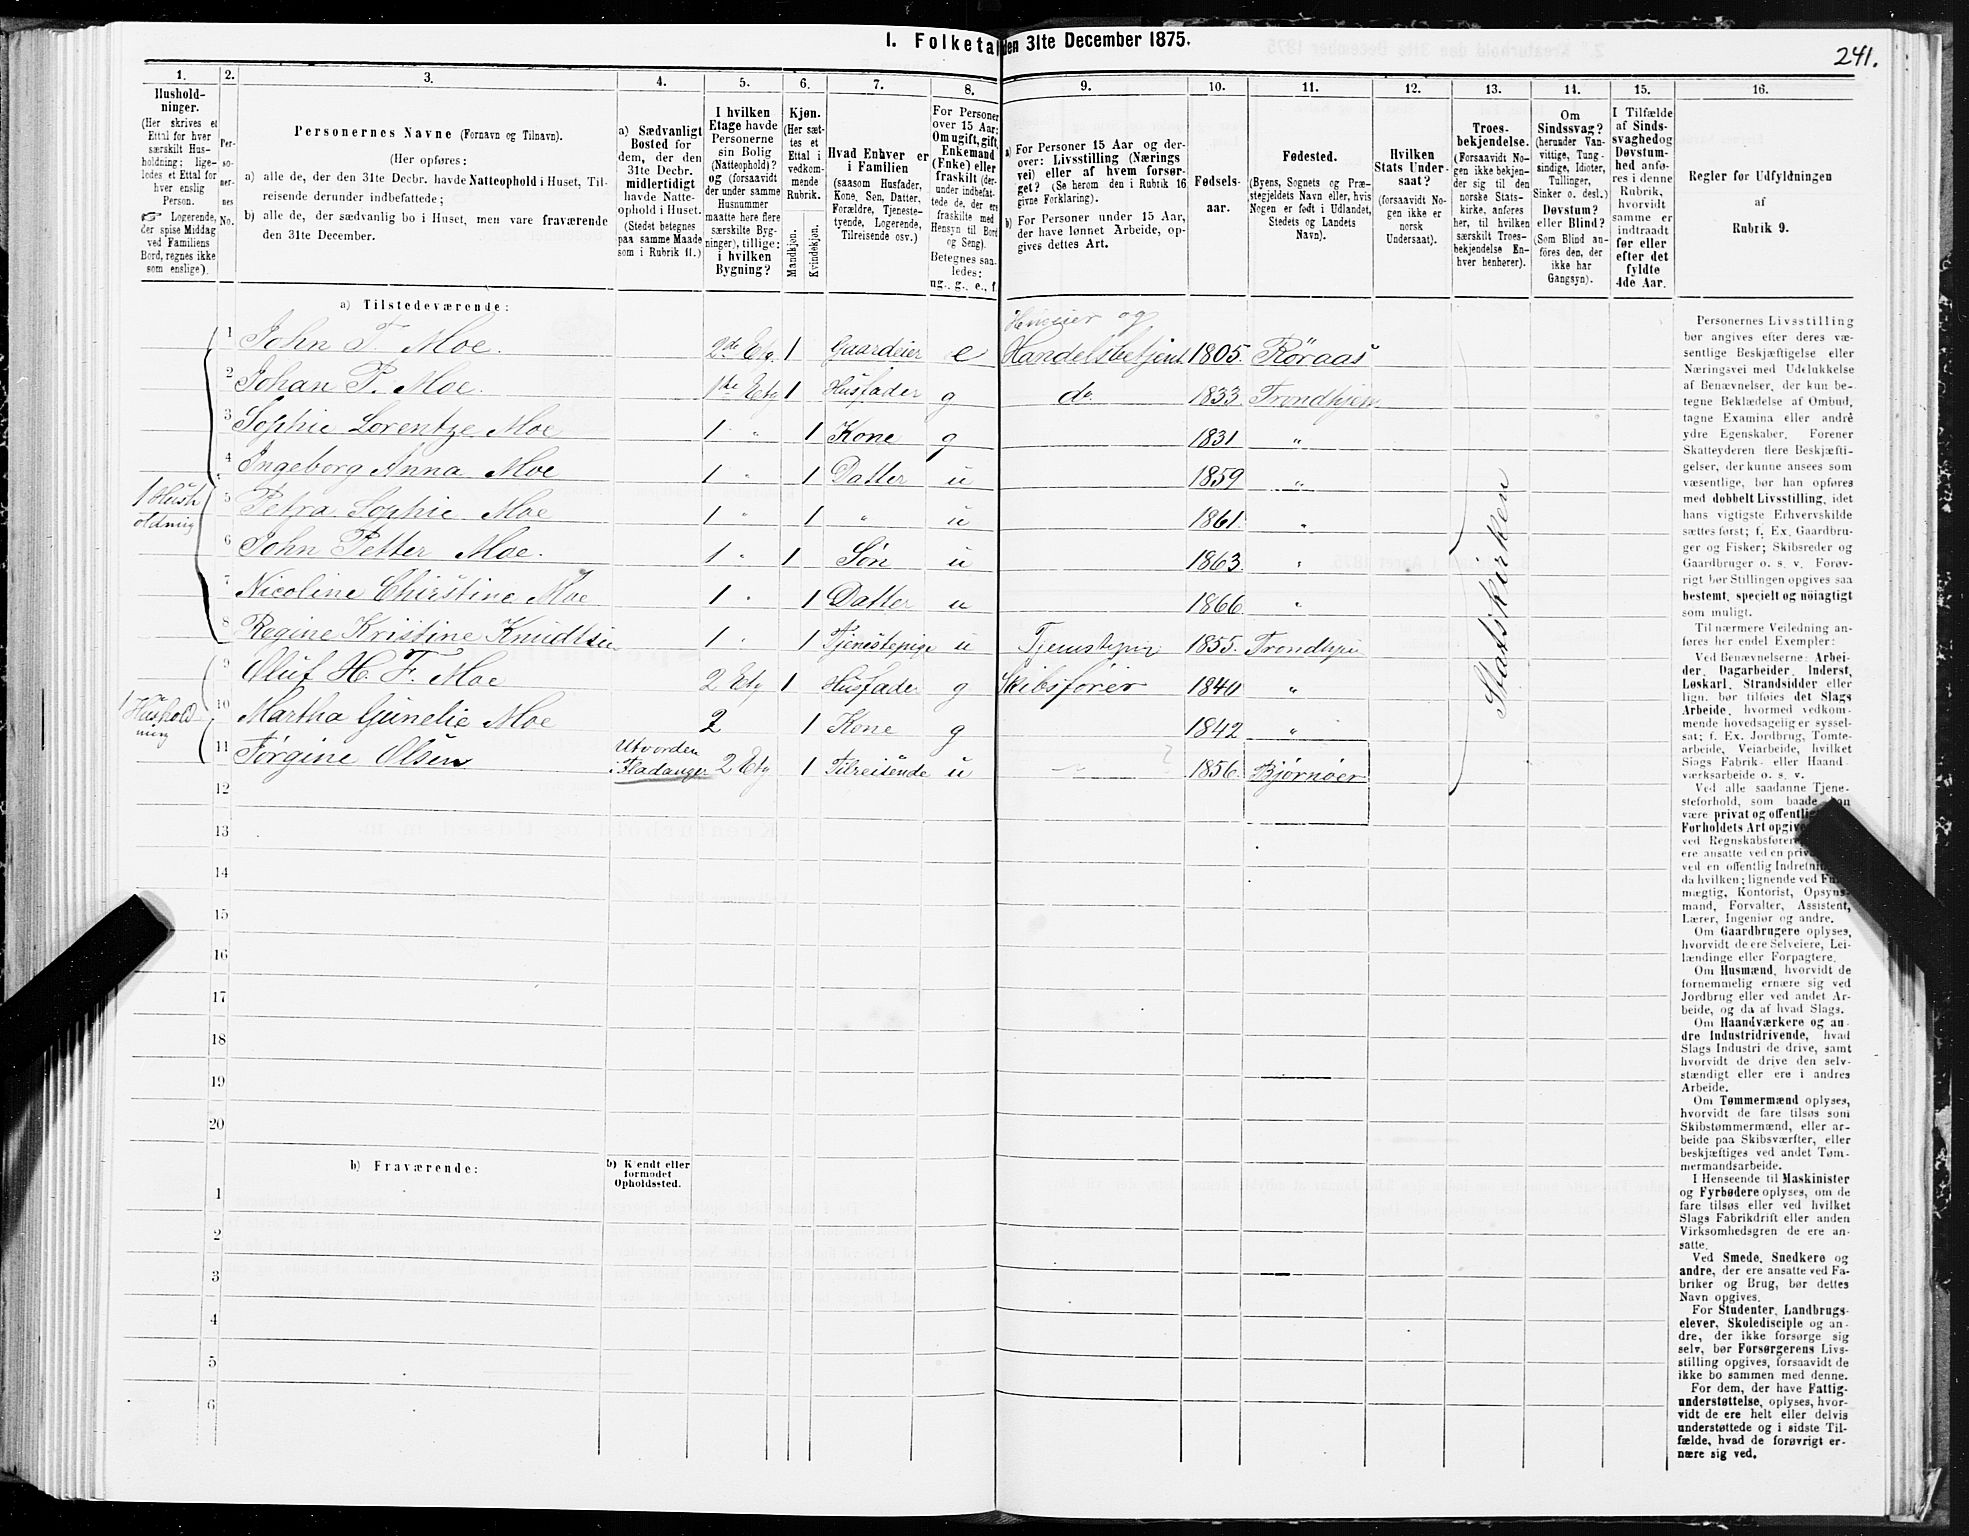 241.
I. Folketal den 31te December 1875.
1.
Hushold-
ninger.
(Her skrives et
Ettal for hver
særskilt Hus-
holdning; lige-
ledes et Ettal for
hver enslig
Person.
☞ Logerende,
der spise Middag
ved Familiens
Bord, regnes ikke
som enslige).
2.
Per-
so-
ner-
nes
No.
3.
Personernes Navne (Fornavn og Tilnavn).
(Her opføres:
a) alle de, der den 31te Decbr. havde Natteophold i Huset, Til-
reisende derunder indbefattede;
b) alle de, der sædvanlig bo i Huset, men vare fraværende
den 31te December.
4.
a) Sædvanligt
Bosted for
dem, der den
31te Decbr.
midlertidigt
havde Natte-
ophold i Huset.
(Stedet betegnes
paa samme Maade
som i Rubrik 11.)
5.
I hvilken
Etage havde
Personerne
sin Bolig
(Natteophold)?
og (forsaavidt
der under samme
Husnummer
maatte høre flere
særskilte Byg-
ninger), tillige:
i hvilken
Bygning?
6.
Kjøn.
(Her sæt-
tes et
Ettal i
vedkom-
mende
Rubrik.
Mandkjøn.
Kvindekjøn.
7.
Hvad Enhver er
i Familien
(saasom Husfader,
Kone, Søn, Datter,
Forældre, Tjeneste-
tyende, Logerende,
Tilreisende osv.)
8.
For Personer
over 15 Aar:
Om ugift, gift,
Enkemand
(Enke) eller
fraskilt (der-
under indbefat-
tede de, der ere
fraskilte med
Hensyn til Bord
og Seng).
Betegnes saa-
ledes:
ug., g., e., f.
9.
a) For Personer 15 Aar og der-
over: Livsstilling (Nærings
vei) eller af hvem forsør-
get? (Se herom den i Rubrik 16
givne Forklaring).
b) For Personer under 15 Aar,
der have lønnet Arbeide, op-
gives dettes Art.
10.
Fødsels-
aar.
11.
Fødested.
(Byens, Sognets og Præ-
stegjeldets Navn eller, hvis
Nogen er født i Udlandet,
Stedets og Landets
Navn).
12.
Hvilken
Stats Under-
saat?
(forsaavidt No-
gen ikke er
norsk
Undersaat).
13.
Troes-
bekjendelse.
(Forsaavidt No-
gen ikke bekjen-
der sig til den
norske Stats-
kirke, anføres
her, til hvilken
særskilt Troes-
bekjendelse En-
hver henhører).
14.
Om
Sindssvag?
(herunder Van-
vittige, Tung-
sindige, Idioter,
Tullinger,
Sinker o. desl.)
Døvstum?
eller Blind?
(Som Blind an-
føres den, der
ikke har
Gangsyn).
15.
I Tilfælde
af Sinds-
svaghed og
Døvstum-
hed anfø-
res i denne
Rubrik,
hvorvidt
samme er
indtraadt
før eller
efter det
fyldte
4de Aar.
16.
Regler for Udfyldningen
af
Rubrik 9.
a) Tilstedeværende:
Huseier og
1 John F. Moe. 2de Etg. 1 Gaardeier e Handelsbetjent 1805. Röraas
2 Johan P. Moe. 1ste Etg 1 Husfader g do 1833. Trondhjem
3 Sophie Lorentze Moe 1 " 1 Kone g 1831 "
4 Ingeborg Anna Moe 1 " 1 Datter u 1859 "
1 Hush
oldning
5 Petra Sophie Moe 1 " 1 " u 1861. "
6 John Petter Moe. 1 " 1 Søn u 1863. "
7 Nicoline Christine Moe 1 " 1 Datter u 1866. "
8 Regine Kristine Knudtsen 1 " 1 Tjenistepige u Tjenistepige 1855. Trondhjem
9 Oluf H. F. Moe 2 Etg 1 Husfader g Skibsfører 1840 "
1 Hushold
ning
10 Martha Gunelie Moe 2 1 Kone g 1842 "
11 Jørgine Olsen Utvorden
i Fladanger 2 Etg 1 Tilreisende u " ? 1856. Bjørnöer
Statskirken
12
13
14
15
16
17
18
19
20
b) Fraværende:
b) Kendt eller
formodet
Opholdssted.
1
2
3
4
5
6
Personernes Livsstilling
bør angives efter deres væ-
sentlige Beskjæftigelse eller
Næringsvei med Udelukkelse
af Benævnelser, der kun be-
tegne Beklædelse af Ombud,
tagne Examina eller andre
ydre Egenskaber. Forener
Skatteyderen flere Beskjæfti-
gelser, der kunne ansees som
væsentlige, bør han opføres
med dobbelt Livsstilling, idet
hans vigtigste Erhvervskilde
sættes først; f. Ex. Gaardbru-
ger og Fisker; Skibsreder og
Gaardbruger o. s. v. Forøv-
rigt bør Stillingen opgives saa
bestemt, specielt og nöiagtigt
som muligt.
Til nærmere Veiledning an-
føres her endel Exempler:
Ved Benævnelserne: Arbei-
der, Dagarbeider, Inderst,
Løskarl, Strandsidder eller
lign. bør tilføies det Slags
Arbeide, hvormed vedkom-
mende hovedsagelig er syssel-
sat; f. Ex. Jordbrug, Tomte-
arbeide, Veiarbeide, hvilket
Slags Fabrik- eller Haand-
værksarbeide o. s. v.
Ved alle saadanne Tjene-
steforhold, som baade
være privat og offentlig
Forholdets Art opgive
ved Regnskabsfører
ere ansatte ved en pri
ved en offentlig Indretni
da hvilken; lignende ved Fuld-
mægtig, Kontorist, Opsyns-
mand, Forvalter, Assistent,
Lærer, Ingeniør og andre.
Om Gaardbrugere oplyses,
hvorvidt de ere Selveiere, Lei-
lændinge eller Forpagtere.
Om Husmænd, hvorvidt de
fornemmelig ernære sig ved
Jordbrug eller ved andet Ar-
beide, og da af hvad Slags.
Om Haandværkere og an-
dre Industridrivende, hvad
Slags Industri de drive, samt
hvorvidt de drive den selv-
stændigt eller ere i andres
Arbeide.
Om Tømmermænd oplyses,
hvorvidt de fare tilsøs som
Skibstømmermænd, eller ar-
beide paa Skibsværfter, eller
beskjæftiges ved andet Tøm-
mermandsarbeide.
I Henseende til Maskinister
og Fyrbødere oplyses, om de
fare tilsøs eller ved hvilket
Slags Fabrikdrift eller anden
Virksomhedsgren de ere an-
satte.
Ved Smede, Snedkere og
andre, der ere ansatte ved Fa-
briker og Brug, bør dettes
Navn opgives.
For Studenter, Landbrugs-
elever, Skoledisciple og an-
dre, der ikke forsørge sig
selv, bør Forsørgerens Livs-
stilling opgives, forsaavidt de
ikke bo sammen med denne.
For dem, der have Fattig-
understøttelse, oplyses, hvor-
vidt de ere helt eller delvis
understøttede og i sidste Til-
fælde, hvad de forøvrigt er-
nære sig ved.